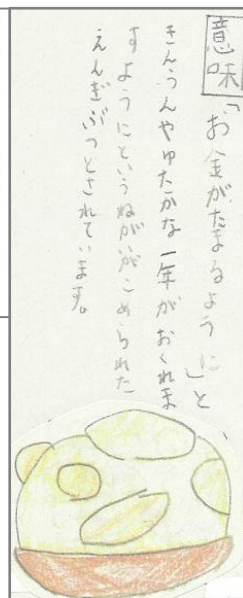 意味「お金がたまるように」と
きんうんやゆたかな一年がおくれま
すようにというねがいがこめられた
えんぎぶつとされています。